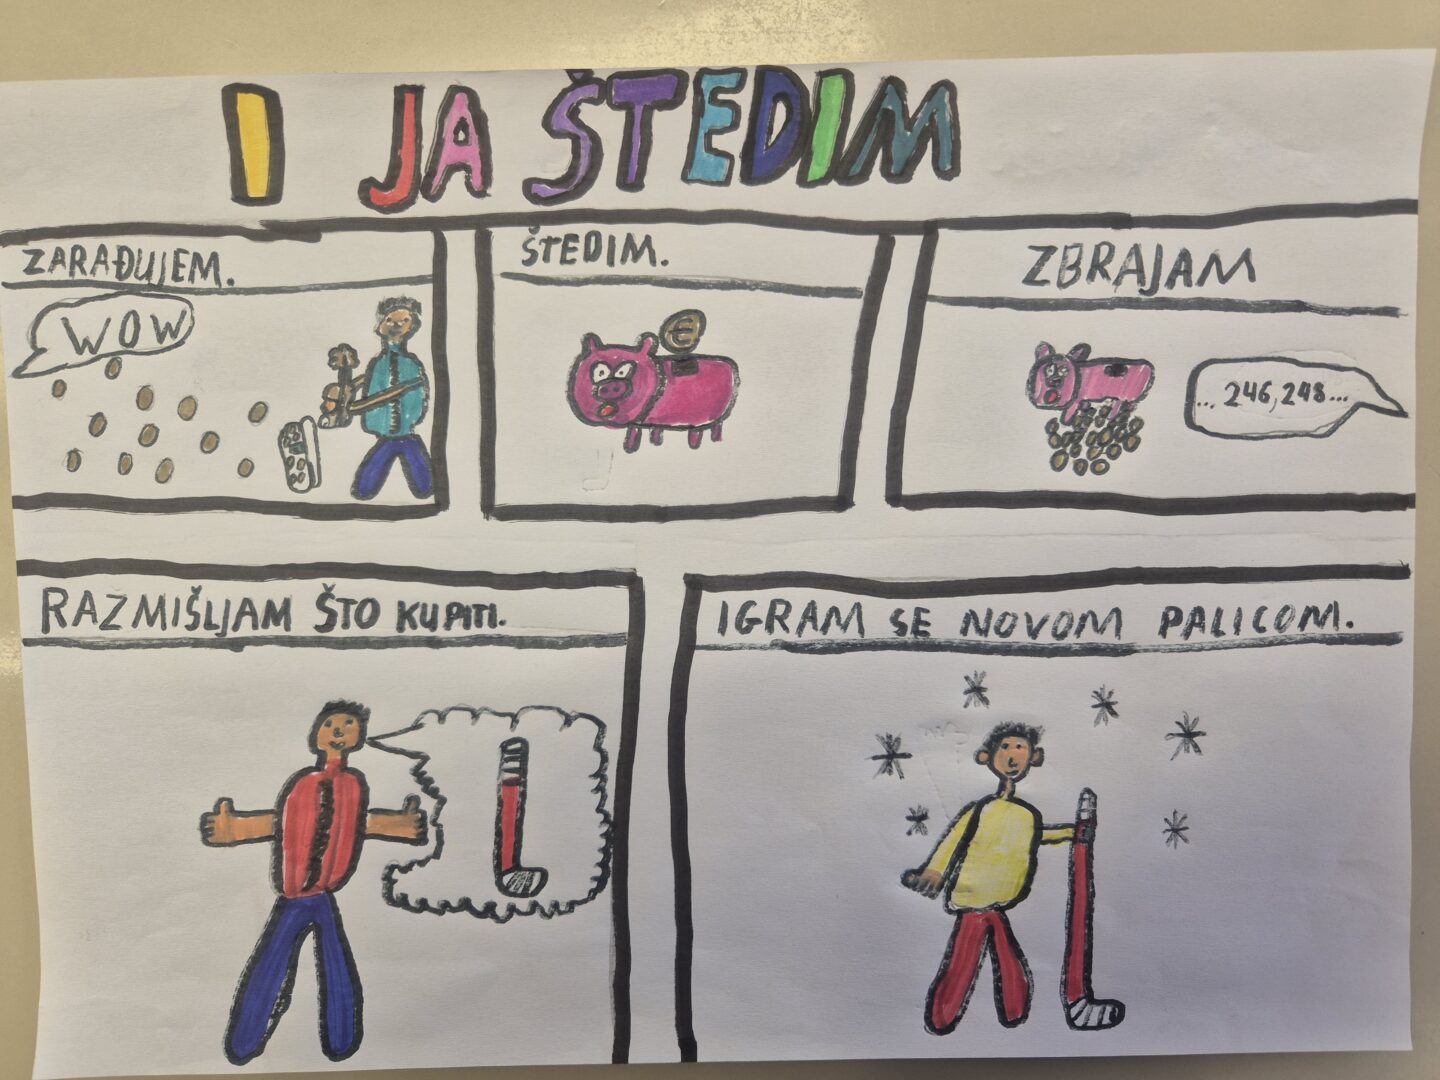 I JA ŠTEDIM
ZARAĐUJEM.
WOW
ŠTEDIM.
€
ZBRAJAM
... 246, 248...
RAZMIŠLJAM ŠTO KUPITI.
IGRAM SE NOVOM PALICOM.